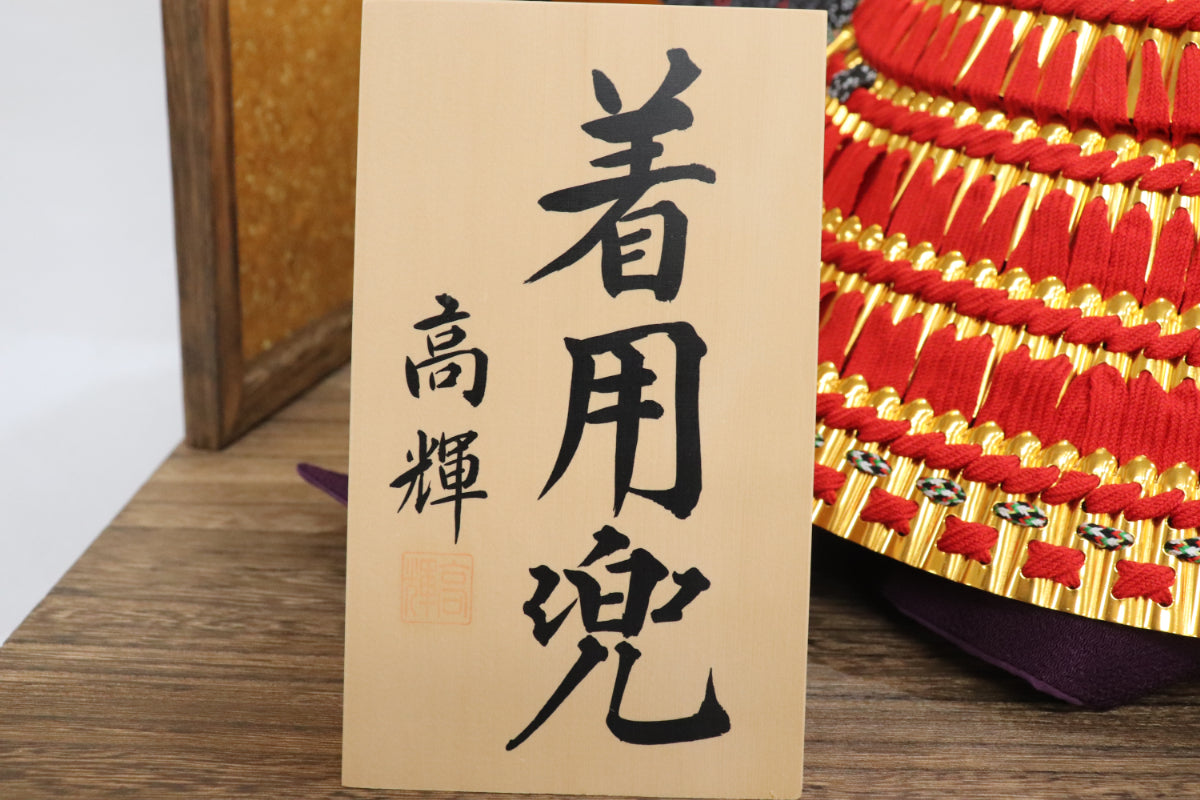 着用兜
高輝
高輝